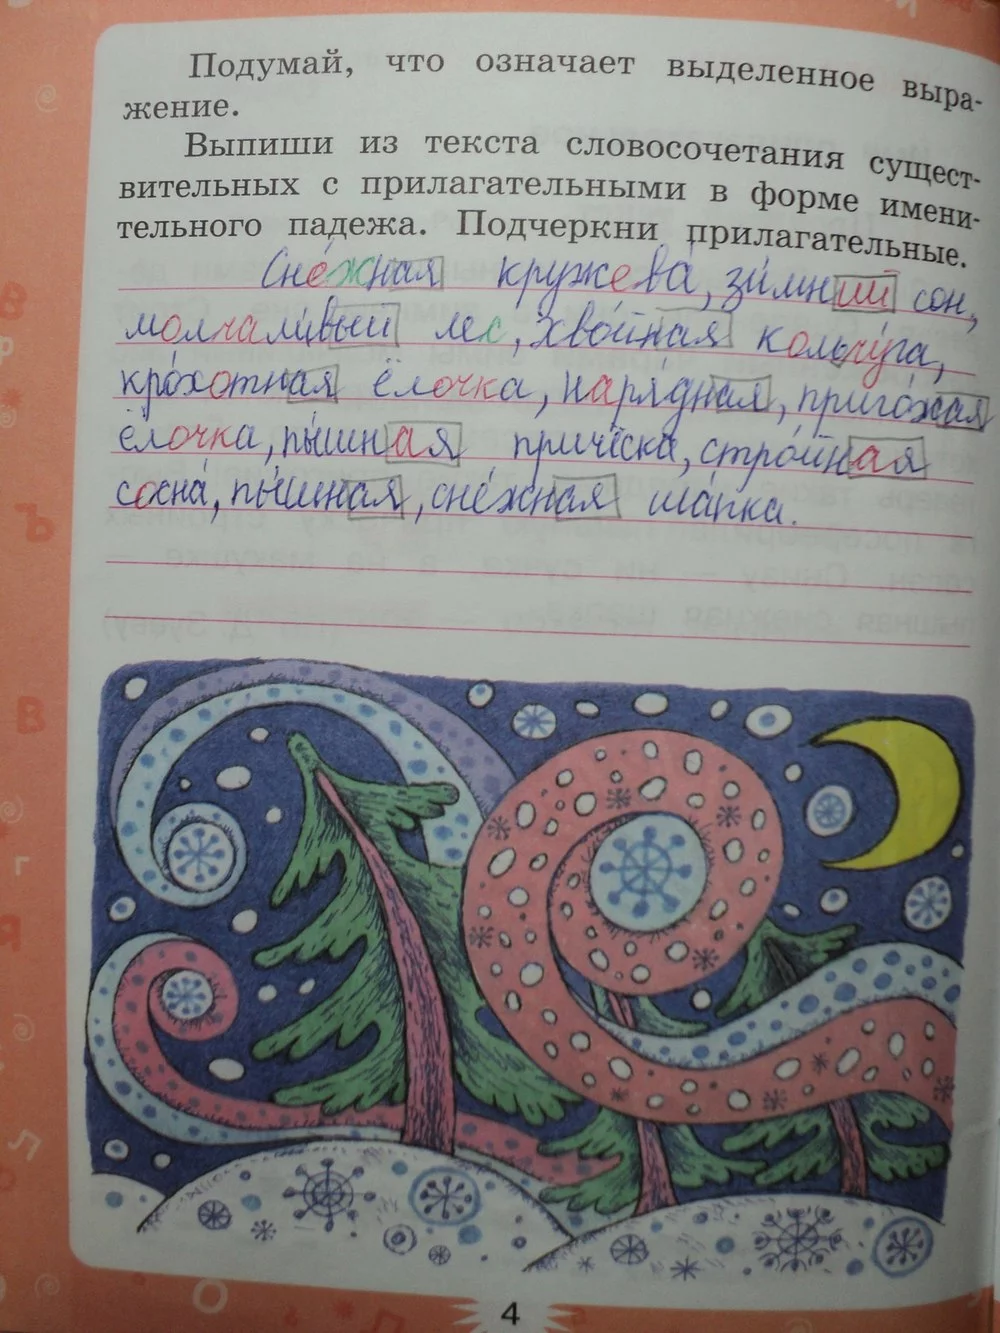 Подумай, что означает выделенное выра-
жение.
Выпиши из текста словосочетания сущест-
вительных с прилагательными в форме имени-
тельного падежа. Подчеркни прилагательные.
Сне́жная кружева́, зи́мний сон,
молчали́вый лес, хво́йная кольчу́га,
кро́хотная ёлочка, наря́дная, приго́жая
ёлочка, пы́шная причёска, стро́йная
сосна́, пы́шная, сне́жная ша́пка.
4